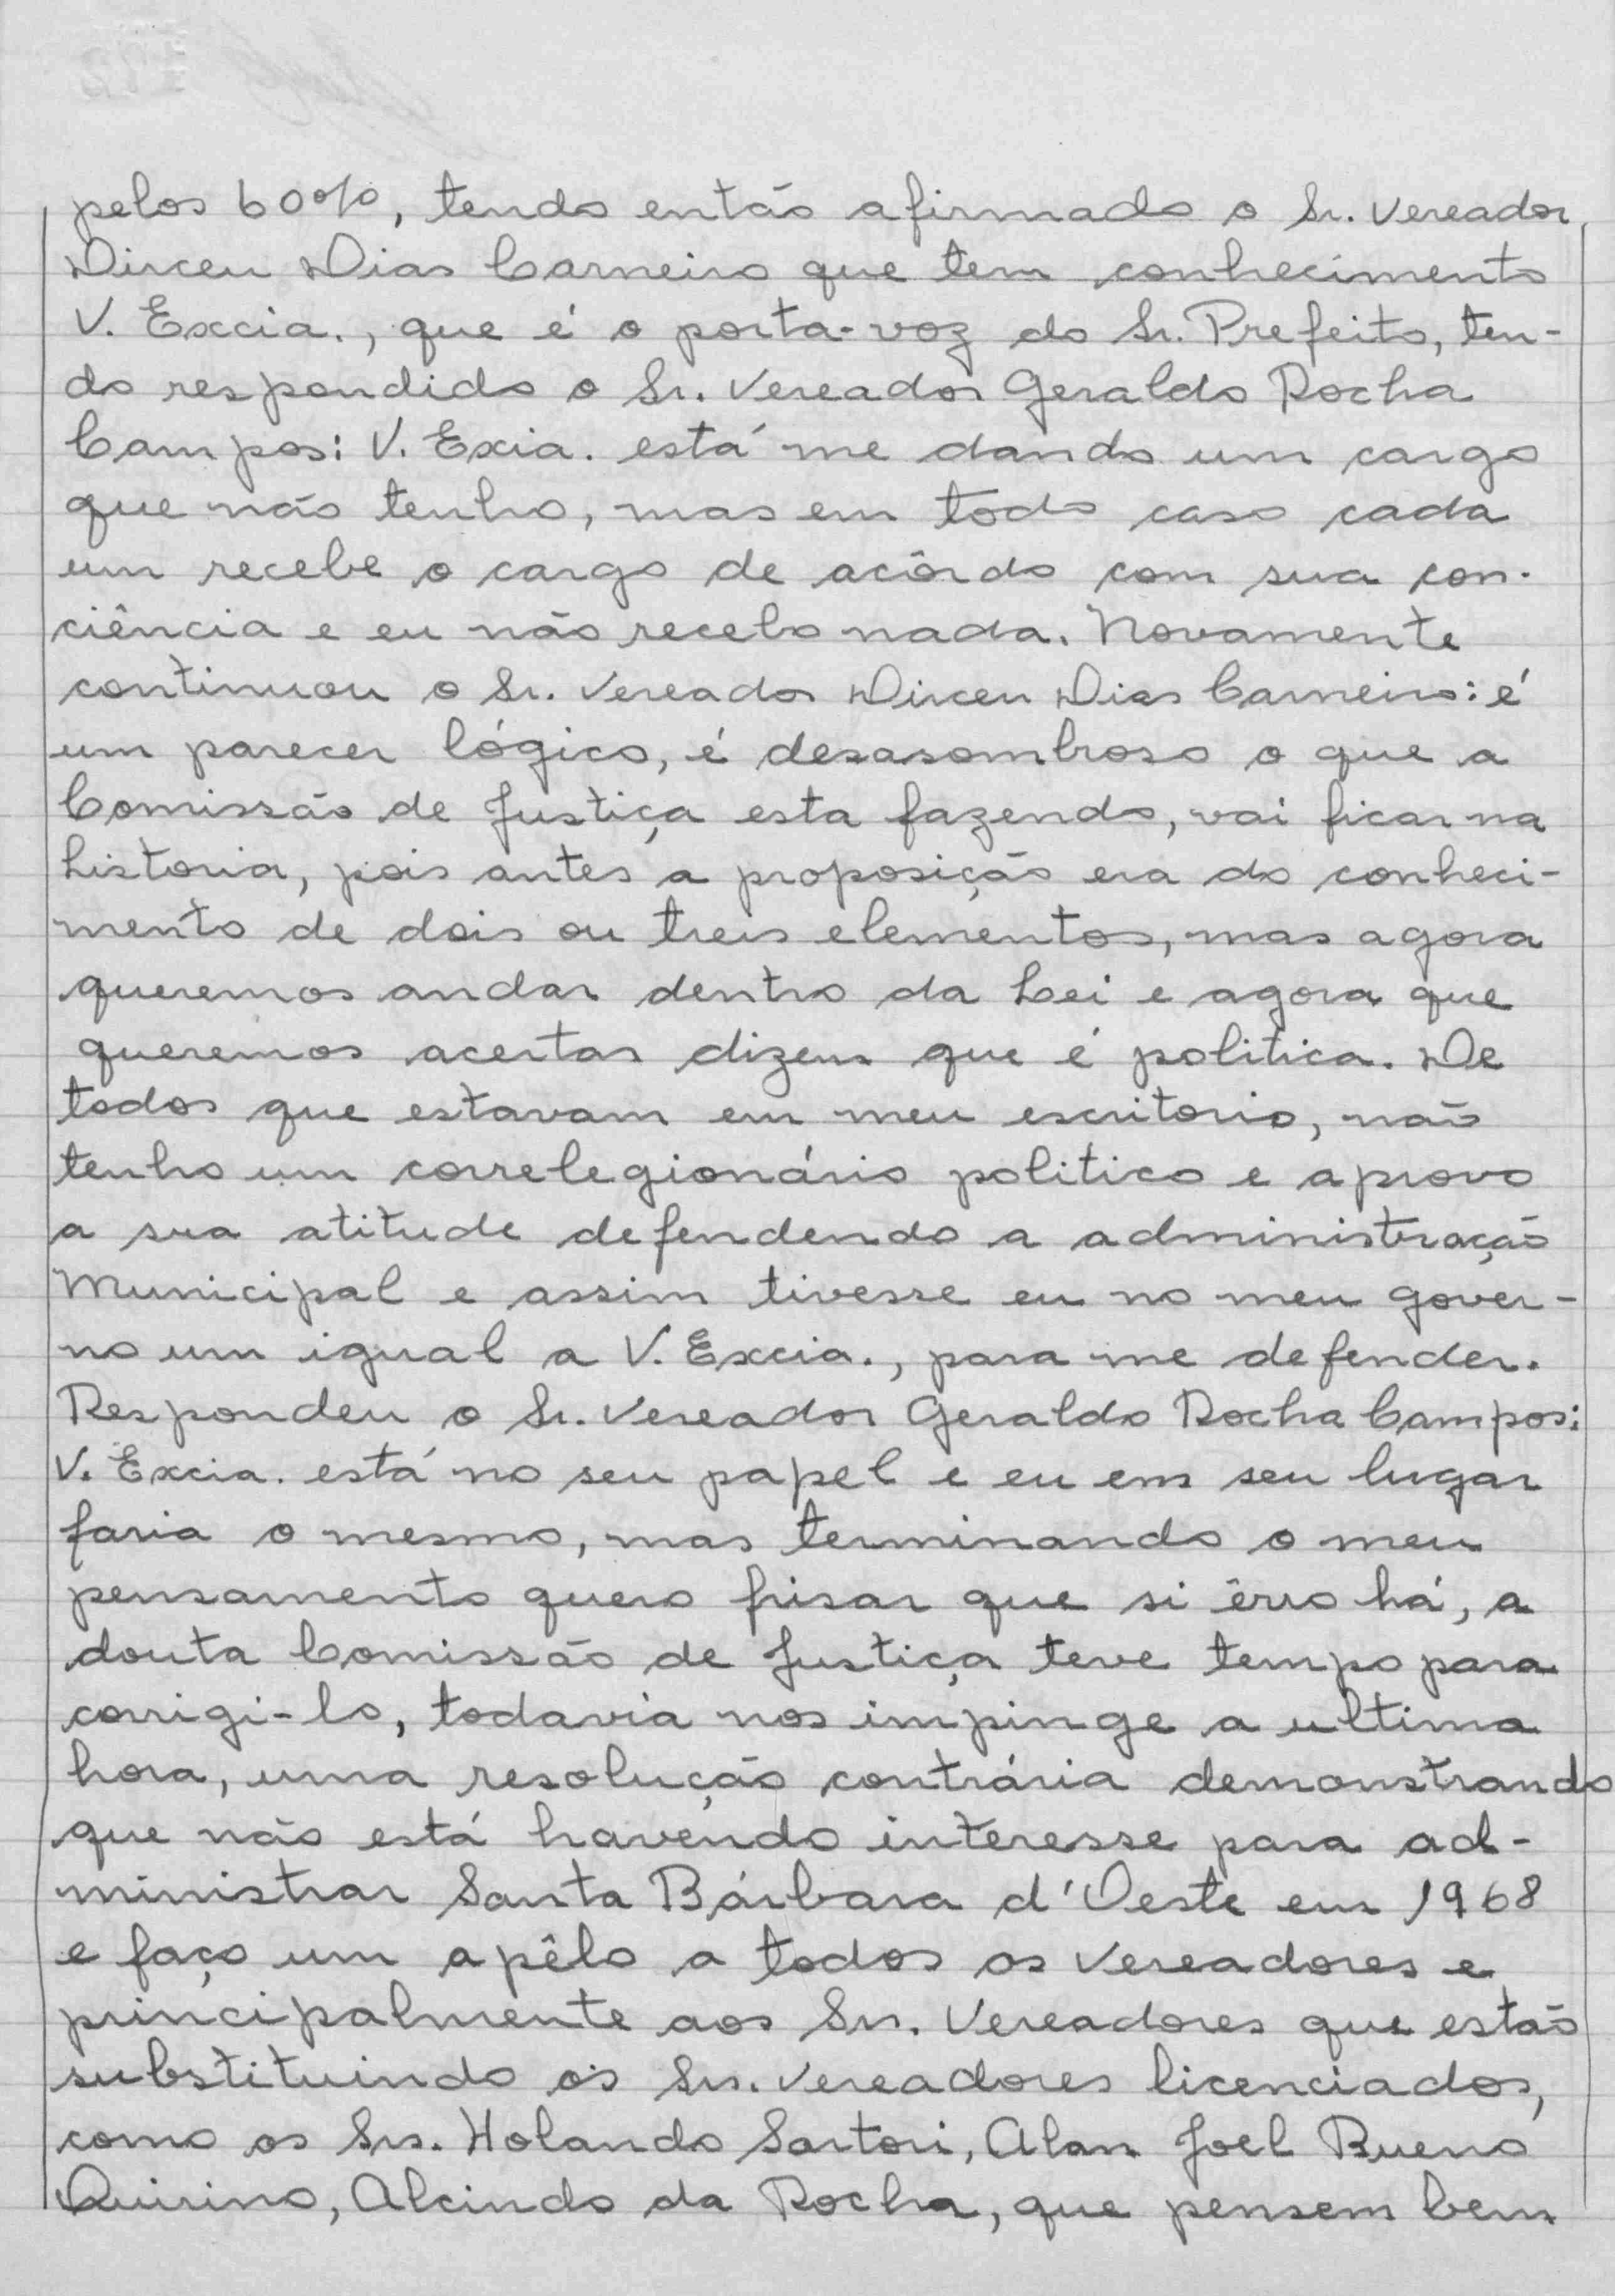 pelos 60%, tendo então afirmado o Sr. Vereador
Dirceu Dias Carneiro que tem conhecimento
V. Excia., que é o porta-voz do Sr. Prefeito, ten-
do respondido o Sr. Vereador Geraldo Rocha
Campos: V. Exia. está me dando um cargo
que não tenho, mas em todo caso cada
um recebe o cargo de acôrdo com sua con-
ciência e eu não recebo nada. Novamente
continuou o Sr. Vereador Dirceu Dias Carneiro: é
um parecer lógico, é desasombroso o que a
Comissão de Justiça esta fazendo, vai ficar na
historia, pois antes a proposição era do conheci-
mento de dois ou treis elementos, mas agora
queremos andar dentro da Lei e agora que
queremos acertar dizem que é politica. De
todos que estavam em meu escritorio, não
tenho um correlegionário politico e aprovo
a sua atitude defendendo a administração
Municipal e assim tivesse eu no meu gover-
no um igual a V. Excia., para me defender.
Respondeu o Sr. Vereador Geraldo Rocha Campos:
V. Excia. está no seu papel e eu em seu lugar
faria o mesmo, mas terminando o meu
pensamento quero frisar que si êrro há, a
douta Comissão de Justiça teve tempo para
corrigi-lo, todavia nos impinge a ultima
hora, uma resolução contrária demonstrando
que não está havendo interesse para ad-
ministrar Santa Bárbara d'Oeste em 1968
e faço um apêlo a todos os Vereadores e
principalmente aos Srs. Vereadores que estão
substituindo os Srs. Vereadores licenciados,
como os Srs. Holando Sartori, Alan Joel Bueno
Quirino, Alcindo da Rocha, que pensem bem